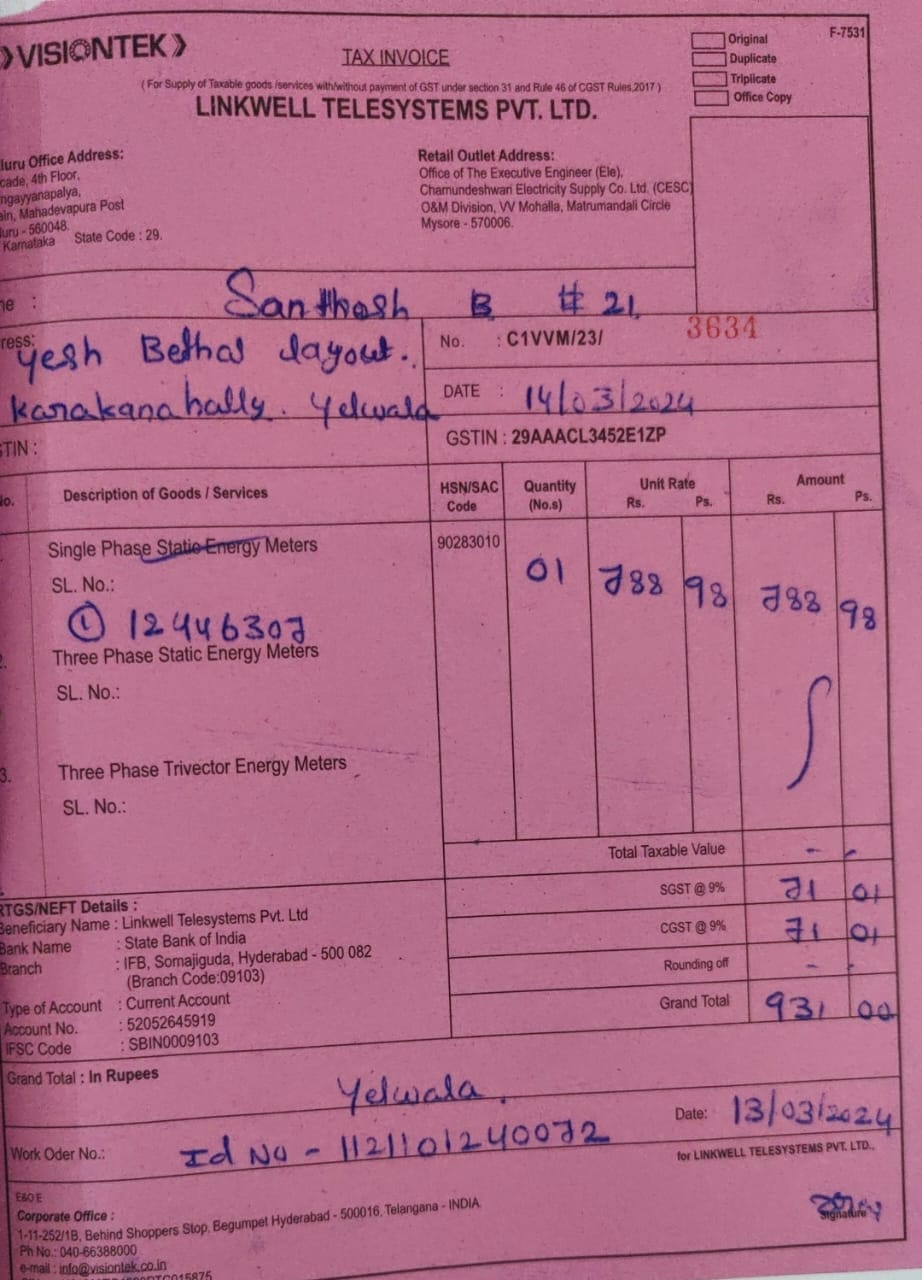 VISIONTEK
TAX INVOICE
F-7531
Original
Duplicate
Triplicate
Office Copy
( For Supply of Taxable goods /services with/without payment of GST under section 31 and Rule 46 of CGST Rules,2017 )
LINKWELL TELESYSTEMS PVT. LTD.
luru Office Address:
cade, 4th Floor,
ngayyanapalya,
ain, Mahadevapura Post
luru - 560048.
Karnataka State Code : 29.
Retail Outlet Address:
Office of The Executive Engineer (Ele),
Chamundeshwari Electricity Supply Co. Ltd. (CESC)
O&M Division, VV Mohalla, Matrumandali Circle
Mysore - 570006.
ne : Santhosh B # 21,
ress: yesh Bethal layout.
karakanahally. Yelwala
STIN :
No. : C1VVM/23/ 3634
DATE : 14/03/2024
GSTIN : 29AAACL3452E1ZP
No. Description of Goods / Services HSN/SAC Code Quantity (No.s) Unit Rate Rs. Ps. Amount Rs. Ps.
Single Phase Static Energy Meters 90283010 01 788 98 788 98
SL. No.:
① 12446307
2. Three Phase Static Energy Meters
SL. No.:
3. Three Phase Trivector Energy Meters
SL. No.:
Total Taxable Value - -
SGST @ 9% 71 01
CGST @ 9% 71 01
Rounding off - -
Grand Total 931 00
RTGS/NEFT Details :
Beneficiary Name : Linkwell Telesystems Pvt. Ltd
Bank Name : State Bank of India
Branch : IFB, Somajiguda, Hyderabad - 500 082
(Branch Code:09103)
Type of Account : Current Account
Account No. : 52052645919
IFSC Code : SBIN0009103
Grand Total : In Rupees
Yelwala.
Date: 13/03/2024
Work Oder No.: Id No - 1121101240072
for LINKWELL TELESYSTEMS PVT. LTD.,
E&O E
Corporate Office :
1-11-252/1B, Behind Shoppers Stop, Begumpet Hyderabad - 500016. Telangana - INDIA
Ph No.: 040-66388000
e-mail : info@visiontek.co.in
Signature